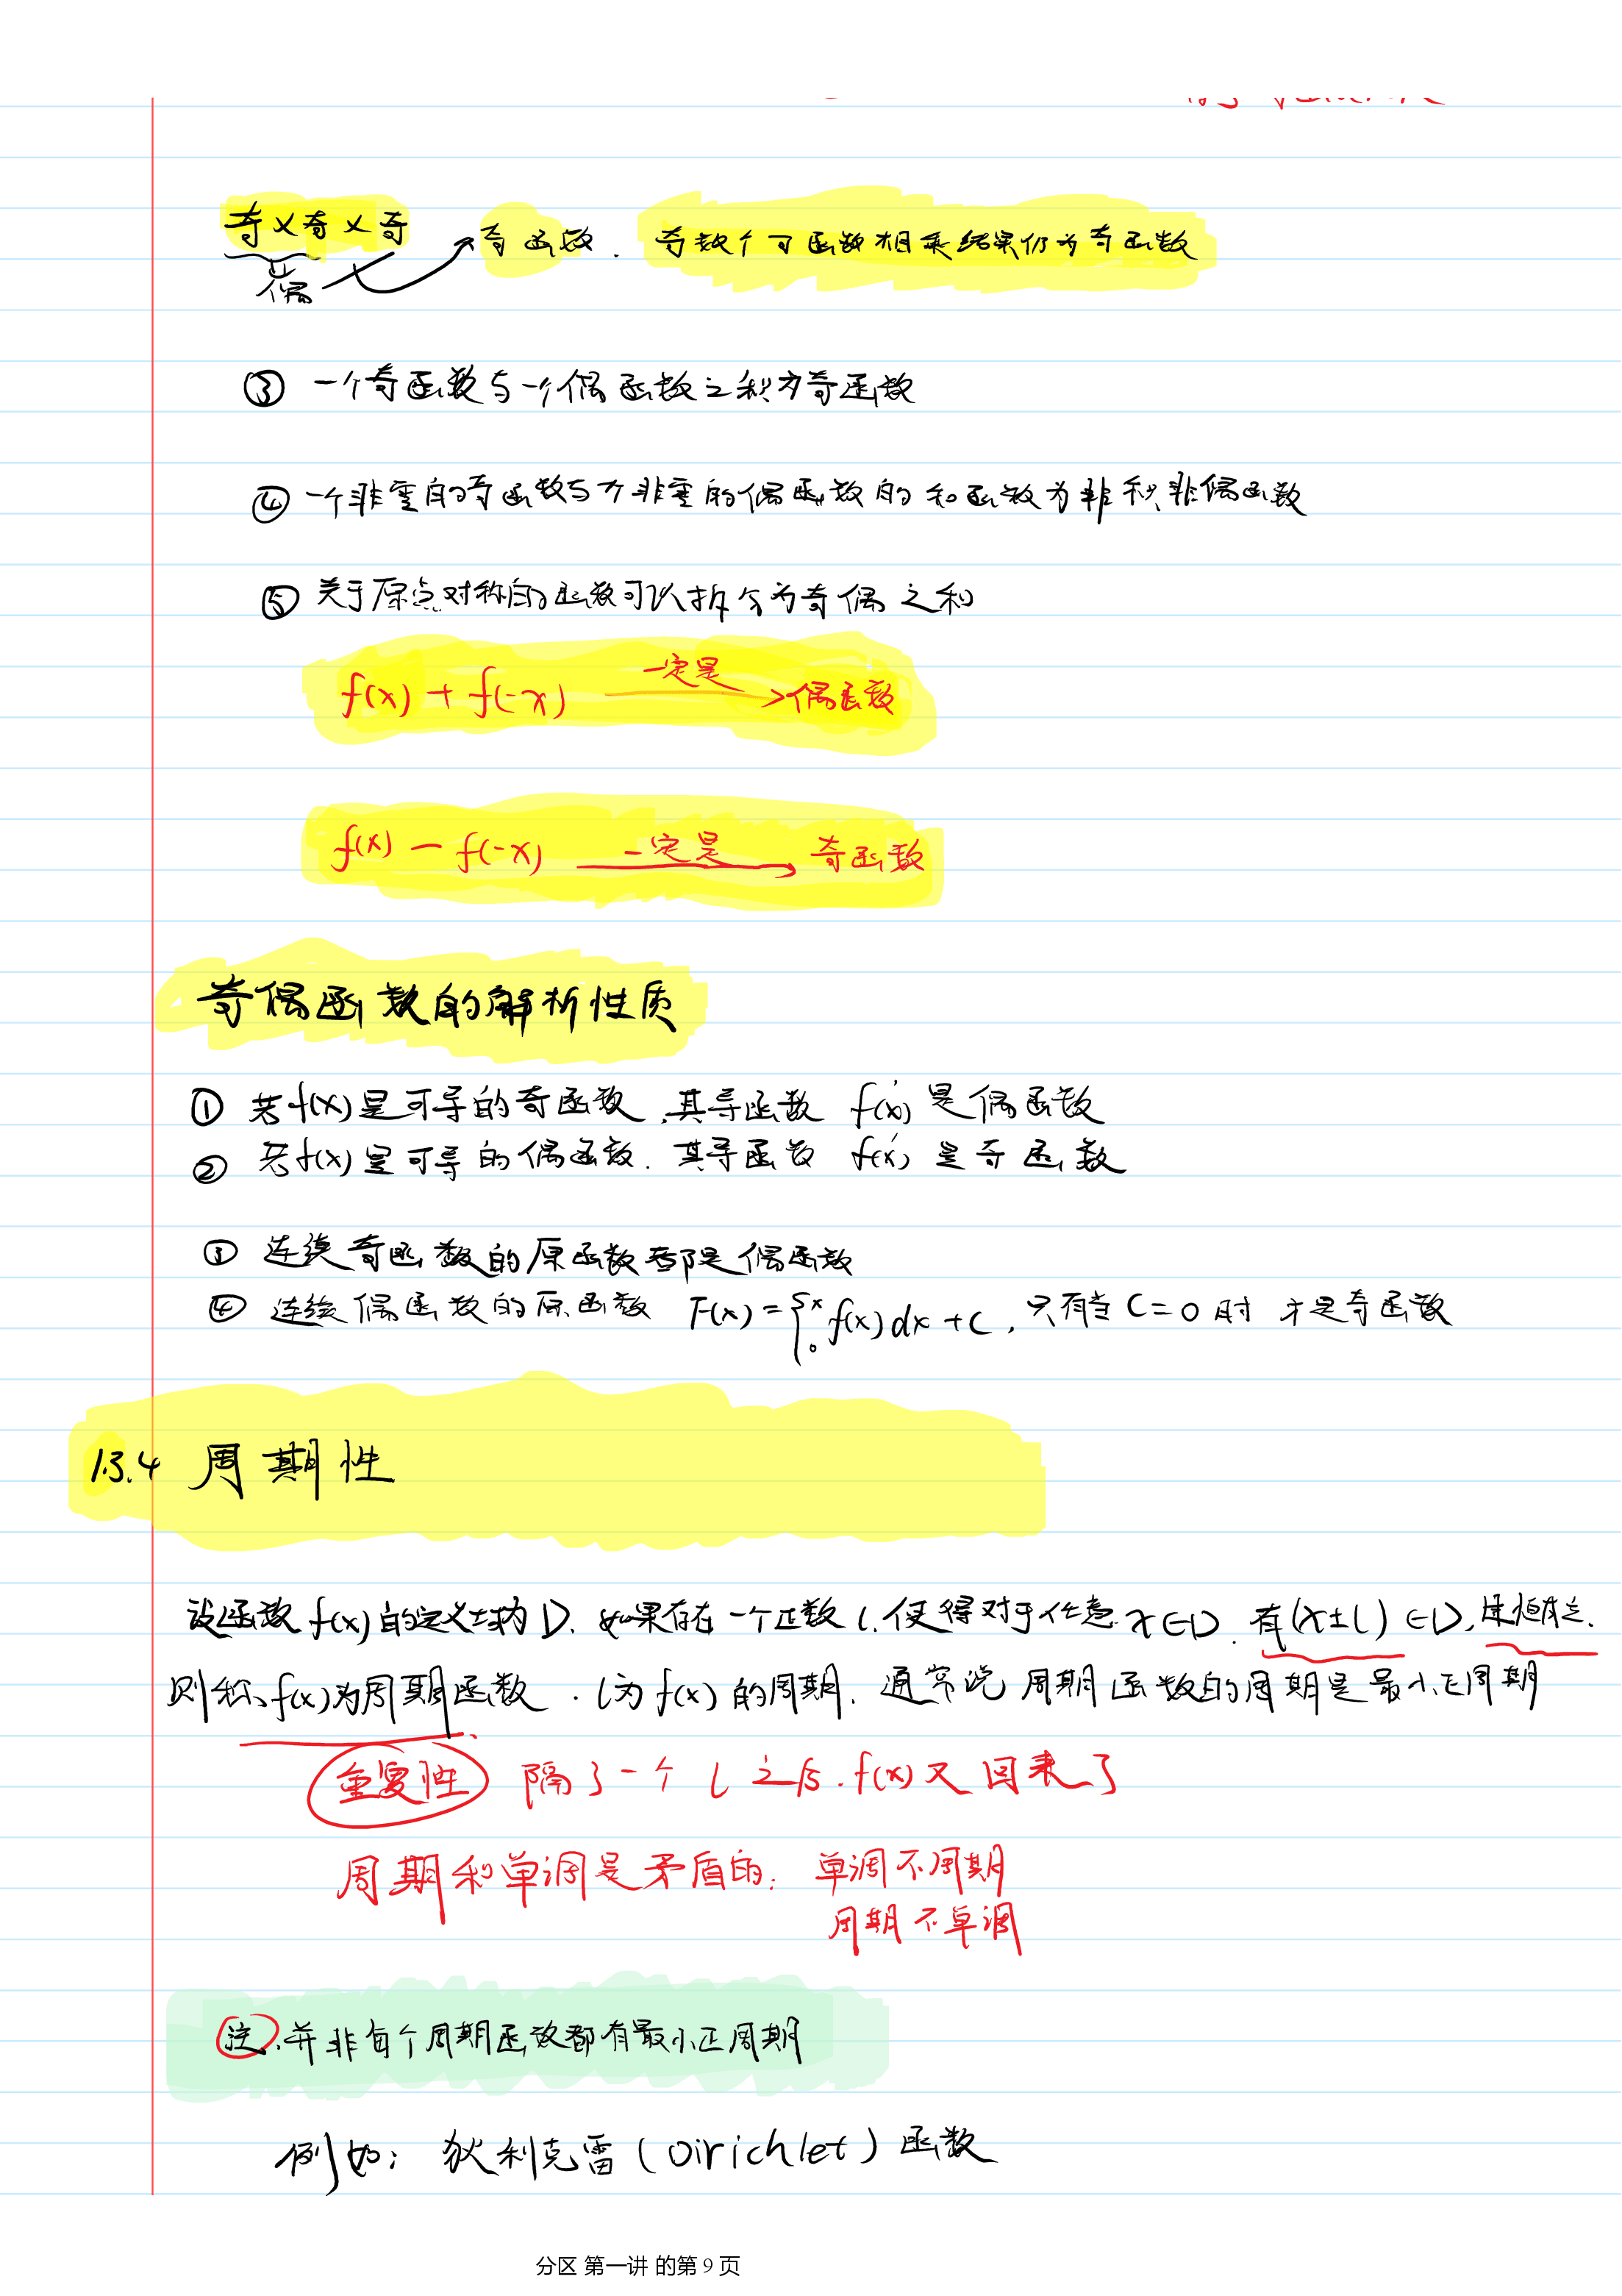 奇×奇×奇
偶
奇函数. 奇数个奇函数相乘结果仍为奇函数
③ 一个奇函数与一个偶函数之积为奇函数
④ 一个非零的奇函数与个非零的偶函数的和函数为非奇非偶函数
⑤ 关于原点对称的函数可以拆分为奇偶之和
f(x) + f(-x) 一定是 偶函数
f(x) - f(-x) 一定是 奇函数
奇偶函数的解析性质
① 若f(x)是可导的奇函数,其导函数 f'(x) 是偶函数
② 若f(x)是可导的偶函数. 其导函数 f'(x) 是奇函数
③ 连续奇函数的原函数都是偶函数
④ 连续偶函数的原函数 F(x) = ∫₀ˣ f(x) dx + C, 只有当 C=0 时 才是奇函数
1.3.4 周期性
设函数f(x)的定义域为D. 如果存在一个正数l, 使得对于任意x∈D. 有(x±l)∈D, 且恒成立.
则称f(x)为周期函数. l为f(x)的周期. 通常说周期函数的周期是最小正周期
重复性 隔了一个 l 之后. f(x)又回来了
周期和单调是矛盾的: 单调不周期
周期不单调
注. 并非每个周期函数都有最小正周期
例如: 狄利克雷(Dirichlet)函数
分区 第一讲 的第 9 页